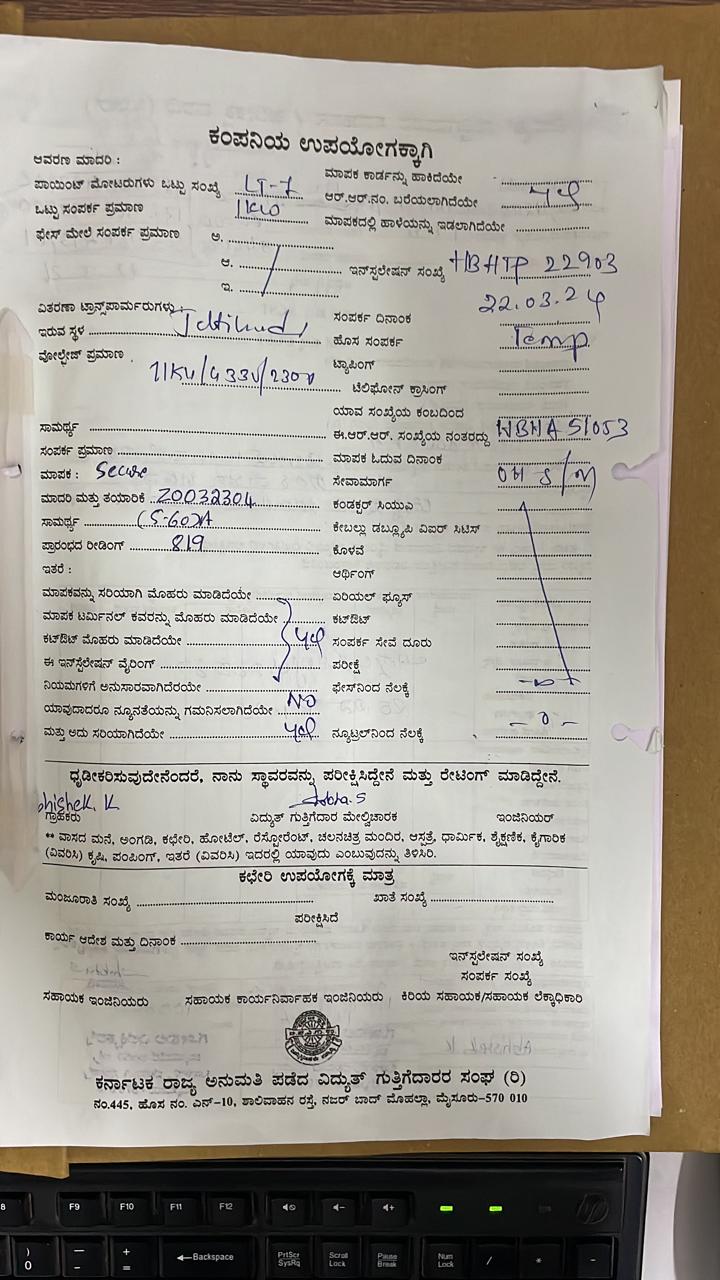 ಕಂಪನಿಯ ಉಪಯೋಗಕ್ಕಾಗಿ
ಆವರಣ ಮಾದರಿ :
ಪಾಯಿಂಟ್ ಮೋಟರುಗಳು ಒಟ್ಟು ಸಂಖ್ಯೆ LT-7
ಒಟ್ಟು ಸಂಪರ್ಕ ಪ್ರಮಾಣ 1KW
ಫೇಸ್ ಮೇಲೆ ಸಂಪರ್ಕ ಪ್ರಮಾಣ ಅ.
ಆ.
ಇ.
ವಿತರಣಾ ಟ್ರಾನ್ಸ್‌ಪಾರ್ಮರುಗಳು :
ಇರುವ ಸ್ಥಳ
ವೋಲ್ಟೇಜ್ ಪ್ರಮಾಣ 11KV/433V/230V
ಸಾಮರ್ಥ್ಯ
ಸಂಪರ್ಕ ಪ್ರಮಾಣ
ಮಾಪಕ : Secure
ಮಾದರಿ ಮತ್ತು ತಯಾರಿಕೆ 20032304
ಸಾಮರ್ಥ್ಯ (5-60)A
ಪ್ರಾರಂಭದ ರೀಡಿಂಗ್ 819
ಇತರೆ :
ಮಾಪಕವನ್ನು ಸರಿಯಾಗಿ ಮೊಹರು ಮಾಡಿದೆಯೇ
ಮಾಪಕ ಟರ್ಮಿನಲ್ ಕವರನ್ನು ಮೊಹರು ಮಾಡಿದೆಯೇ
ಕಟ್‌ಔಟ್ ಮೊಹರು ಮಾಡಿದೆಯೇ yes
ಈ ಇನ್‌ಸ್ಟೆಲೇಷನ್ ವೈರಿಂಗ್
ನಿಯಮಗಳಿಗೆ ಅನುಸಾರವಾಗಿದೆರಯೇ
ಯಾವುದಾದರೂ ನ್ಯೂನತೆಯನ್ನು ಗಮನಿಸಲಾಗಿದೆಯೇ NO
ಮತ್ತು ಅದು ಸರಿಯಾಗಿದೆಯೇ yes
ಮಾಪಕ ಕಾರ್ಡನ್ನು ಹಾಕಿದೆಯೇ
ಆರ್.ಆರ್.ನಂ. ಬರೆಯಲಾಗಿದೆಯೇ yes
ಮಾಪಕದಲ್ಲಿ ಹಾಳೆಯನ್ನು ಇಡಲಾಗಿದೆಯೇ
ಇನ್‌ಸ್ಟಲೇಷನ್ ಸಂಖ್ಯೆ HBHTP 22903
ಸಂಪರ್ಕ ದಿನಾಂಕ 22.03.24
ಹೊಸ ಸಂಪರ್ಕ Temp
ಟ್ಯಾಪಿಂಗ್
ಟೆಲಿಫೋನ್ ಕ್ರಾಸಿಂಗ್
ಯಾವ ಸಂಖ್ಯೆಯ ಕಂಬದಿಂದ
ಈ.ಆರ್.ಆರ್. ಸಂಖ್ಯೆಯ ನಂತರದ್ದು WBHA 51053
ಮಾಪಕ ಓದುವ ದಿನಾಂಕ
ಸೇವಾಮಾರ್ಗ OH S/M
ಕಂಡಕ್ಟರ್ ಸಿಯುವಿ
ಕೇಬಲ್ಲು ಡಬ್ಲ್ಯೂಪಿ ವಿಐರ್ ಸಿಟಿಸ್
ಕೊಳವೆ
ಆರ್ಥಿಂಗ್
ಏರಿಯಲ್ ಫ್ಯೂಸ್
ಕಟ್‌ಔಟ್
ಸಂಪರ್ಕ ಸೇವೆ ದೂರು
ಪರೀಕ್ಷೆ
ಫೇಸ್‌ನಿಂದ ನೆಲಕ್ಕೆ
ನ್ಯೂಟ್ರಲ್‌ನಿಂದ ನೆಲಕ್ಕೆ -0-
ಧೃಡೀಕರಿಸುವುದೇನೆಂದರೆ, ನಾನು ಸ್ಥಾವರವನ್ನು ಪರೀಕ್ಷಿಸಿದ್ದೇನೆ ಮತ್ತು ರೇಟಿಂಗ್ ಮಾಡಿದ್ದೇನೆ.
bhishek. K
ಗ್ರಾಹಕರು ವಿದ್ಯುತ್ ಗುತ್ತಿಗೆದಾರ ಮೇಲ್ವಿಚಾರಕ ಇಂಜಿನಿಯರ್
** ವಾಸದ ಮನೆ, ಅಂಗಡಿ, ಕಛೇರಿ, ಹೋಟೆಲ್, ರೆಸ್ಟೋರೆಂಟ್, ಚಲನಚಿತ್ರ ಮಂದಿರ, ಆಸ್ಪತ್ರೆ, ಧಾರ್ಮಿಕ, ಶೈಕ್ಷಣಿಕ, ಕೈಗಾರಿಕ
(ವಿವರಿಸಿ) ಕೃಷಿ, ಪಂಪಿಂಗ್, ಇತರೆ (ವಿವರಿಸಿ) ಇದರಲ್ಲಿ ಯಾವುದು ಎಂಬುವುದನ್ನು ತಿಳಿಸಿರಿ.
ಕಛೇರಿ ಉಪಯೋಗಕ್ಕೆ ಮಾತ್ರ
ಮಂಜೂರಾತಿ ಸಂಖ್ಯೆ ಖಾತೆ ಸಂಖ್ಯೆ
ಪರೀಕ್ಷಿಸಿದೆ
ಕಾರ್ಯ ಆದೇಶ ಮತ್ತು ದಿನಾಂಕ
ಇನ್‌ಸ್ಟಲೇಷನ್ ಸಂಖ್ಯೆ
ಸಂಪರ್ಕ ಸಂಖ್ಯೆ
ಸಹಾಯಕ ಇಂಜಿನಿಯರು ಸಹಾಯಕ ಕಾರ್ಯನಿರ್ವಾಹಕ ಇಂಜಿನಿಯರು ಕಿರಿಯ ಸಹಾಯಕ/ಸಹಾಯಕ ಲೆಕ್ಕಾಧಿಕಾರಿ
ಕರ್ನಾಟಕ ರಾಜ್ಯ ಅನುಮತಿ ಪಡೆದ ವಿದ್ಯುತ್ ಗುತ್ತಿಗೆದಾರರ ಸಂಘ (ರಿ)
ನಂ.445, ಹೊಸ ನಂ. ಎನ್-10, ಶಾಲಿವಾಹನ ರಸ್ತೆ, ನಜರ್ ಬಾದ್ ಮೊಹಲ್ಲಾ, ಮೈಸೂರು-570 010
8 F9 F10 F11 F12
) 0 — - + = Backspace PrtScr SysRq Scroll Lock Pause Break Num Lock / * -